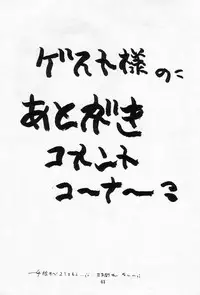 ゲスト様のに
あとがき
コメント
コーナーこ
43